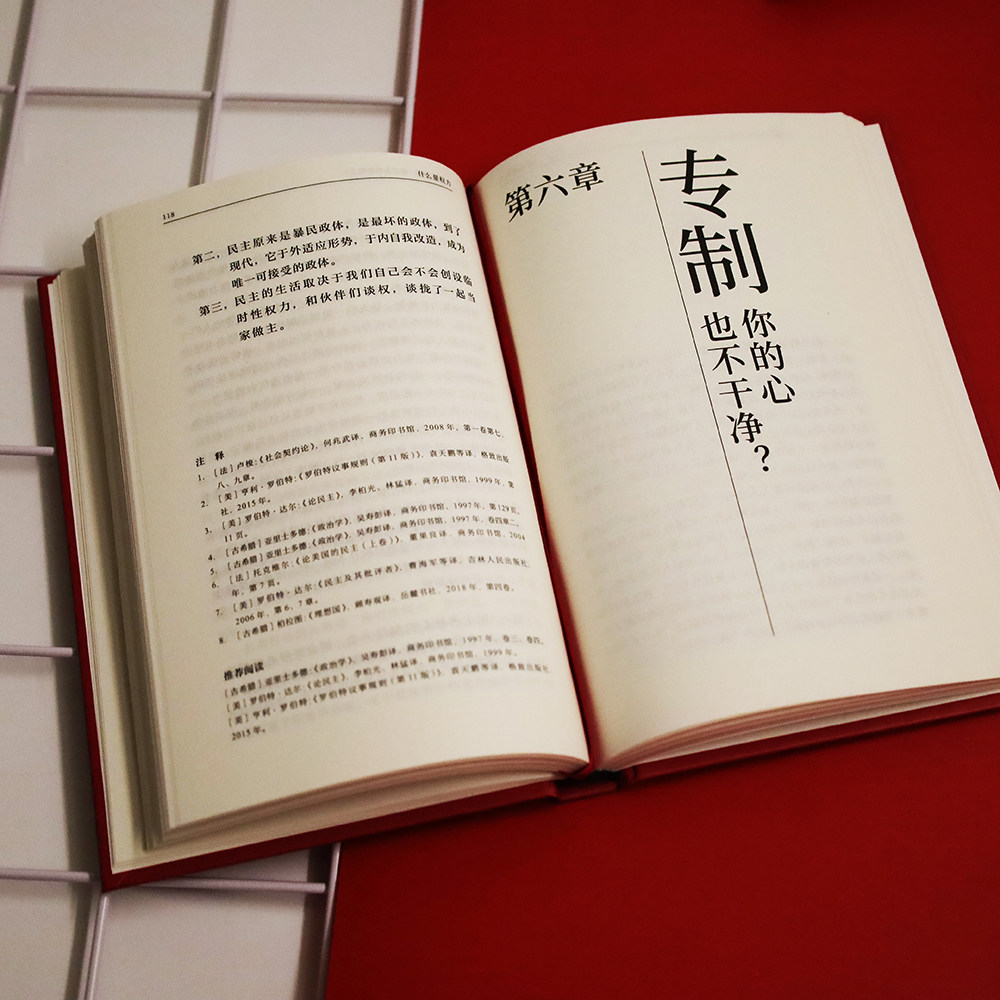 118
什么是权力
第二，民主原来是暴民政体，是最坏的政体，到了
现代，它于外适应形势，于内自我改造，成为
唯一可接受的政体。
第三，民主的生活取决于我们自己会不会创设临
时性权力，和伙伴们谈权，谈拢了一起当
家做主。
注 释
1. [法]卢梭：《社会契约论》，何兆武译，商务印书馆，2008年，第一卷第七、
八、九章。
2. [美]亨利·罗伯特：《罗伯特议事规则（第11版）》，袁天鹏等译，格致出版
社，2015年。
3. [美]罗伯特·达尔：《论民主》，李柏光、林猛译，商务印书馆，1999年，第
11页。
4. [古希腊]亚里士多德：《政治学》，吴寿彭译，商务印书馆，1997年，第129页。
5. [古希腊]亚里士多德：《政治学》，吴寿彭译，商务印书馆，1997年，卷四章二。
6. [法]托克维尔：《论美国的民主（上卷）》，董果良译，商务印书馆，2004
年，第7页。
7. [美]罗伯特·达尔：《民主及其批评者》，曹海军等译，吉林人民出版社，
2006年，第6、7章。
8. [古希腊]柏拉图：《理想国》，顾寿观译，岳麓书社，2018年，第四卷。
推荐阅读
[古希腊]亚里士多德：《政治学》，吴寿彭译，商务印书馆，1997年，卷三、卷四。
[美]罗伯特·达尔：《论民主》，李柏光、林猛译，商务印书馆，1999年。
[美]亨利·罗伯特：《罗伯特议事规则（第11版）》，袁天鹏等译，格致出版社，
2015年。
第六章
专制
你的心
也不干净？